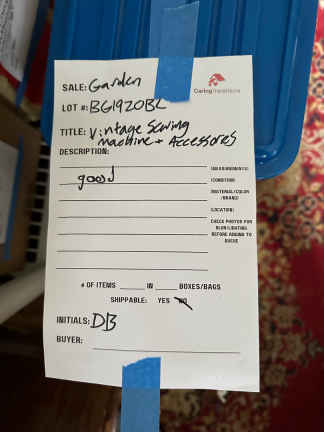 SALE: Garden
CaringTransitions
LOT #: BG1920BL
TITLE: Vintage Sewing
machine + Accessores
DESCRIPTION:
(MEASUREMENTS)
good
(CONDITION)
(MATERIAL/COLOR
/BRAND)
(LOCATION)
CHECK PHOTOS FOR
BLUR/LIGHTING
BEFORE ADDING TO
QUEUE
# OF ITEMS ______ IN ______ BOXES/BAGS
SHIPPABLE: YES NO
INITIALS: DB
BUYER: